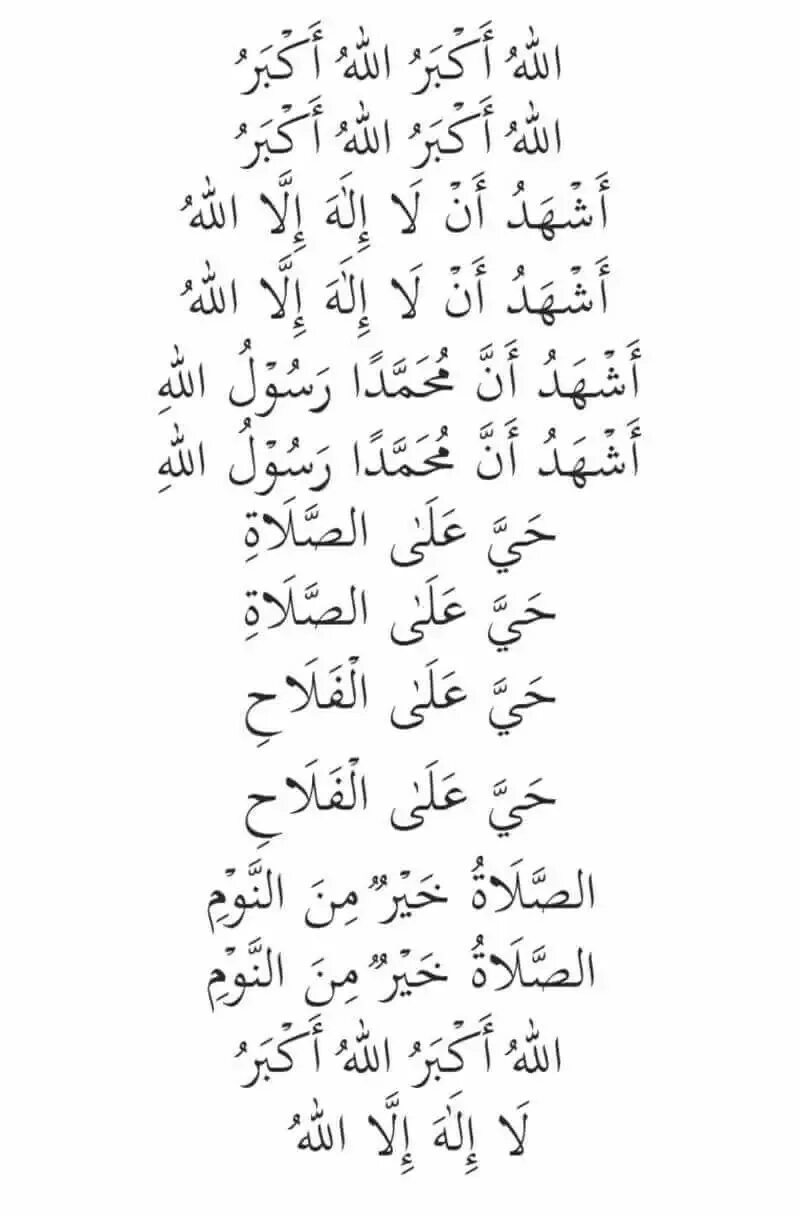 اللهُ أَكْبَرُ اللهُ أَكْبَرُ
اللهُ أَكْبَرُ اللهُ أَكْبَرُ
أَشْهَدُ أَنْ لَا إِلٰهَ إِلَّا اللهُ
أَشْهَدُ أَنْ لَا إِلٰهَ إِلَّا اللهُ
أَشْهَدُ أَنَّ مُحَمَّدًا رَسُوْلُ اللهِ
أَشْهَدُ أَنَّ مُحَمَّدًا رَسُوْلُ اللهِ
حَيَّ عَلَىٰ الصَّلَاةِ
حَيَّ عَلَىٰ الصَّلَاةِ
حَيَّ عَلَىٰ الْفَلَاحِ
حَيَّ عَلَىٰ الْفَلَاحِ
الصَّلَاةُ خَيْرٌ مِنَ النَّوْمِ
الصَّلَاةُ خَيْرٌ مِنَ النَّوْمِ
اللهُ أَكْبَرُ اللهُ أَكْبَرُ
لَا إِلٰهَ إِلَّا اللهُ